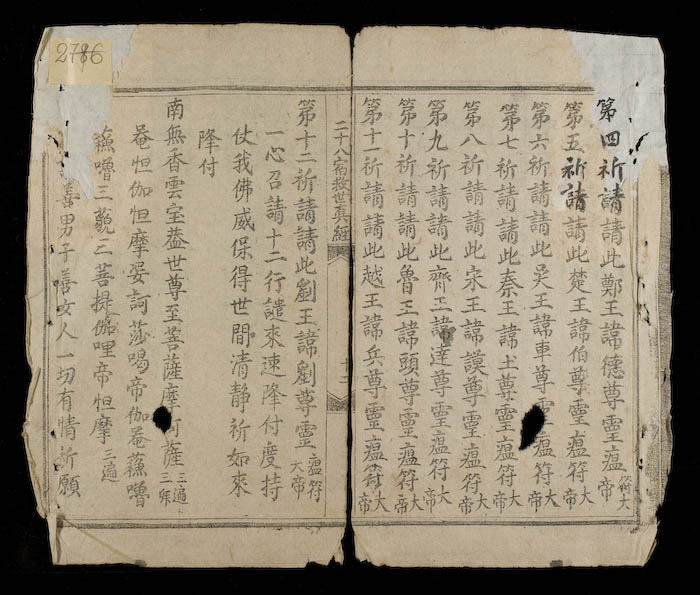 第四祈請請此鄭王諱德尊靈瘟符大帝
第五祈請請此楚王諱伯尊靈瘟符大帝
第六祈請請此吳王諱車尊靈瘟符大帝
第七祈請請此秦王諱士尊靈瘟符大帝
第八祈請請此宋王諱謨尊靈瘟符大帝
第九祈請請此齊王諱達尊靈瘟符大帝
第十祈請請此魯王諱頭尊靈瘟符大帝
第十一祈請請此越王諱兵尊靈瘟符大帝
二十八宿救世真經 十二
第十二祈請請此劉王諱劉尊靈瘟符大帝
一心召請十二行譴來速降付度持
仗我佛威保得世間清静祈如來
降付
南無香雲宝蓋世尊至菩薩摩訶薩三遍
菴怛伽怛摩娑訶莎喝帝伽菴蘓嚕
蘓嚕三藐三菩提佛哩帝怛摩三遍
善男子善女人一切有情祈願
2786